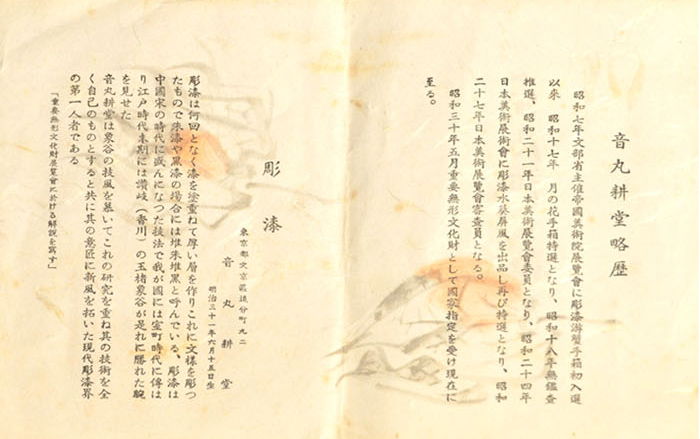 音丸耕堂略歴
昭和七年文部省主催帝國美術院展覽會に彫漆游蟹手箱初入選
以来 昭和十七年 月の花手箱特選となり、昭和十八年無鑑査
推選、昭和二十一年日本美術展覽會委員となり、昭和二十四年
日本美術展術會に彫漆水葵屏風を出品し再び特選となり、昭和
二十七年日本美術展覽會審査員となる。
昭和三十年五月重要無形文化財として國家指定を受け現在に
至る。
彫漆
東京都文京區追分町九二
音丸耕堂
明治三十一年六月十五日生
彫漆は何回となく漆を塗重ねて厚い層を作りこれに文様を彫つ
たもので朱漆や黒漆の場合には堆朱堆黒と呼んでいる、彫漆は
中國宋の時代に盛んになつた技法で我が國には室町時代に傳は
り江戸時代末期には讃岐(香川)の玉楮象谷が是れに勝れた腕
を見せた
音丸耕堂は象谷の技風を慕いてこれの研究を重ね其の技術を全
く自己のものとすると共に其の意匠に新風を拓いた現代彫漆界
の第一人者である
「重要無形文化財展覽會に於ける解説を寫す」